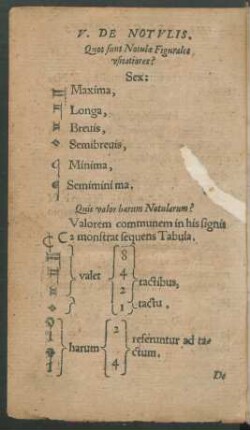 V. DE NOTVLIS.
Quot sunt Notulæ Figurales
vsitatiores?
Sex:
Maxima,
Longa,
Breuis,
Semibreuis,
Minima,
Semiminima.
Quis valor harum Notularum?
Valorem communem in his signis
C C2 monstrat sequens Tabula.
valet
8
4
2
1
tactibus,
tactu.
harum
2
4
referuntur ad ta-
ctum.
De